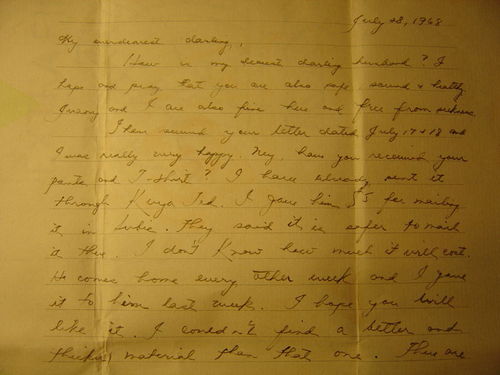 July 28, 1968
My everdearest darling,
How is my dearest darling husband? I
hope and pray that you are also safe, sound & healthy.
and I are also fine here and free from sickness.
I have received your letter dated July 17 & 18 and
I was really very happy. Hey have you received your
pants and T-Shirt? I have already sent it
through Kuya Ted. I gave him $5 for mailing
it in Subic. They said it is safer to mail
it there. I don't know how much it will cost.
He comes home every other week and I gave
it to him last week. I hope you will
like it. I couldn't find a better and
thicker material than that one. There are